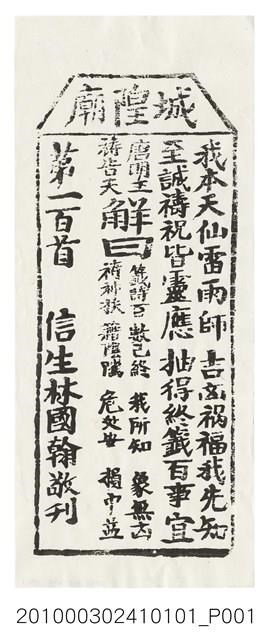 城隍廟
我本天仙雷雨師 吉凶禍福我先知
至誠禱祝皆靈應 抽得終籤百事宜
唐明王
禱告天
解曰
籤詩百 數已終 我所知 象無凶
禱神扶 藉陰隲 危處安 損中益
第一百首 信生林國翰敬刋
201000302410101_P001